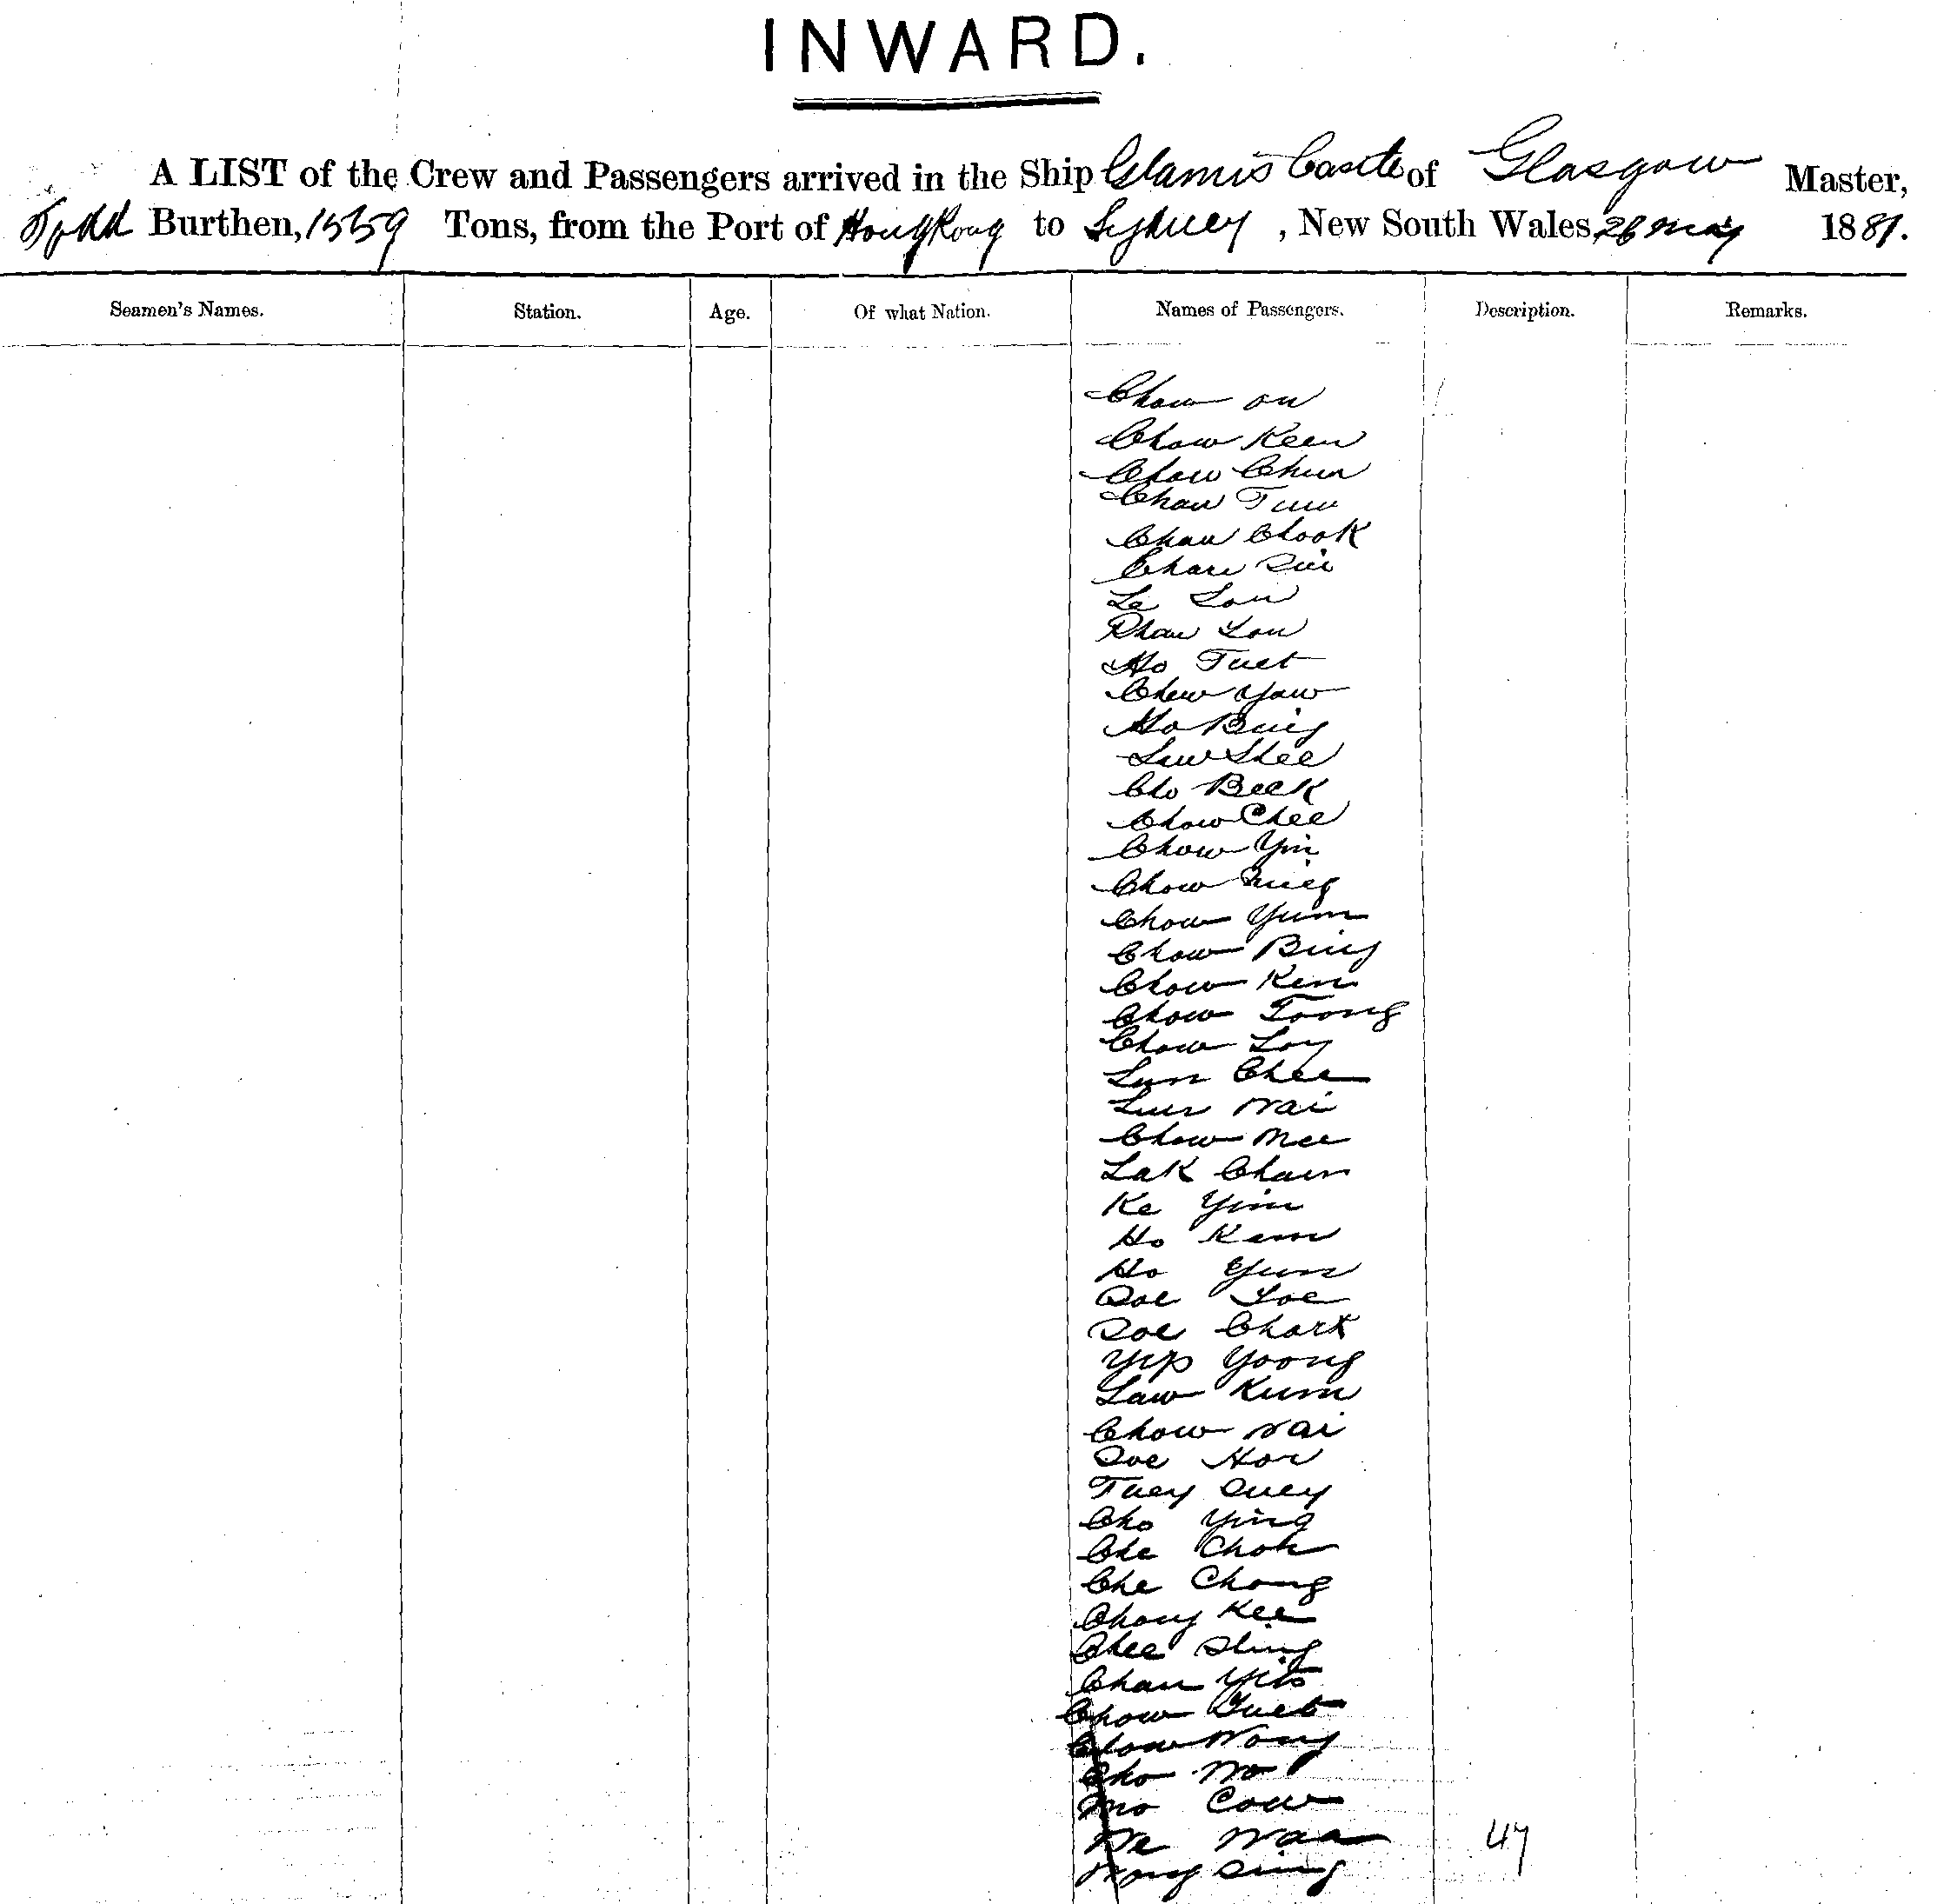 INWARD.
A LIST of the Crew and Passengers arrived in the Ship Glamis Castle of Glasgow Master,
Todd Burthen, 1559 Tons, from the Port of HongKong to Sydney, New South Wales 26 May 1881.
Seamen's Names. Station. Age. Of what Nation. Names of Passengers. Description. Remarks.
Chow on
Chow Keen
Chow Chun
Chow
Chan Chook
Chan
Le Lou
Lou
Ho Tuet
Chew Yaw
Ho Bing
Law Shee
Cho Beck
Chow Chee
Chow Yin
Chow
Chow Yum
Chow Bing
Chow Ken
Chow Toong
Chow Loy
Lun Chee
Lun Wai
Chow Mee
Lak Chan
Ke Yim
Ho Kam
Ho Yun

Chark
Yip Yoong
Law Kum
Chow Wai
Hor
Tuey Suey
Cho Ying
Che Chok
Che Chong
Chong Kee
Chee Sling
Chan Yit
Chow Tuet
Chow Wong
Cho Wo
Mo Cow
We Waa 47
Wong Sing